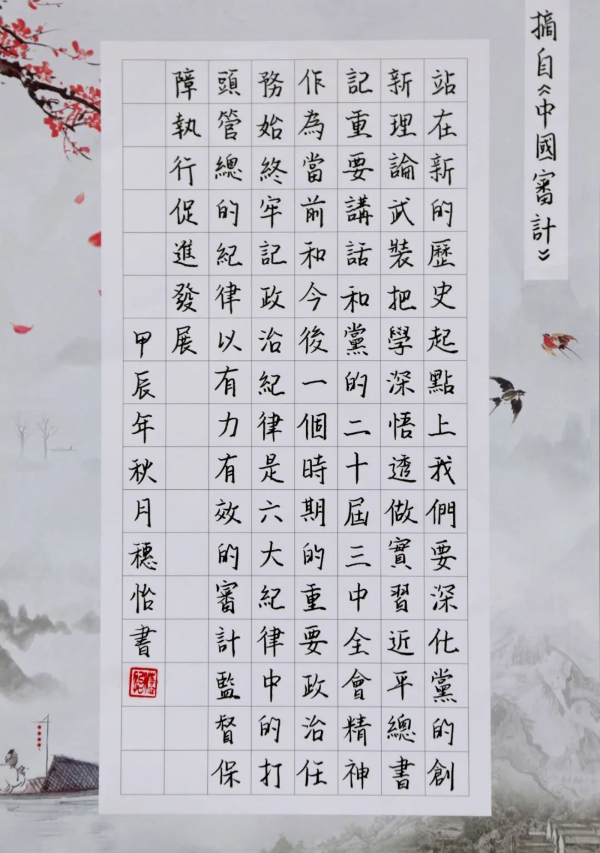 摘自《中國審計》
站在新的歷史起點上我們要深化黨的創
新理論武裝把學深悟透做實習近平總書
記重要講話和黨的二十屆三中全會精神
作為當前和今後一個時期的重要政治任
務始終牢記政治紀律是六大紀律中的打
頭管總的紀律以有力有效的審計監督保
障執行促進發展
甲辰年秋月穗怡書